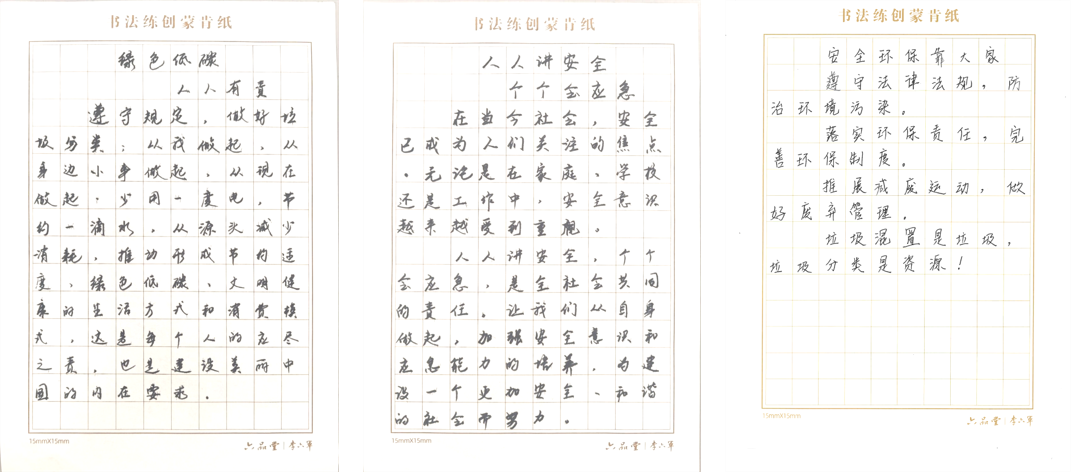 书法练创蒙肯纸
绿色低碳
人人有责
遵守规定，做好垃
圾分类；从我做起，从
身边小事做起，从现在
做起，少用一度电，节
约一滴水，从源头减少
消耗，推动形成节约适
度、绿色低碳、文明健
康的生活方式和消费模
式，这是每个人的应尽
之责，也是建设美丽中
国的内在要求。
15mmX15mm
六品堂 李六军
书法练创蒙肯纸
人人讲安全
个个会应急
在当今社会，安全
已成为人们关注的焦点
。无论是在家庭、学校
还是工作中，安全意识
越来越受到重视。
人人讲安全，个个
会应急，是全社会共同
的责任。让我们从自身
做起，加强安全意识和
应急能力的培养，为建
设一个更加安全、和谐
的社会而努力。
15mmX15mm
六品堂 李六军
书法练创蒙肯纸
安全环保靠大家
遵守法律法规，防
治环境污染。
落实环保责任，完
善环保制度。
推展减废运动，做
好废弃管理。
垃圾混置是垃圾，
垃圾分类是资源！
15mmX15mm
六品堂 李六军